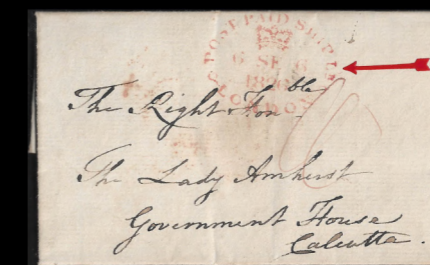 POST PAID SHIP L
6 SE 6
LONDON
The Right Hon.ble
The Lady Amherst
Government House
Calcutta.